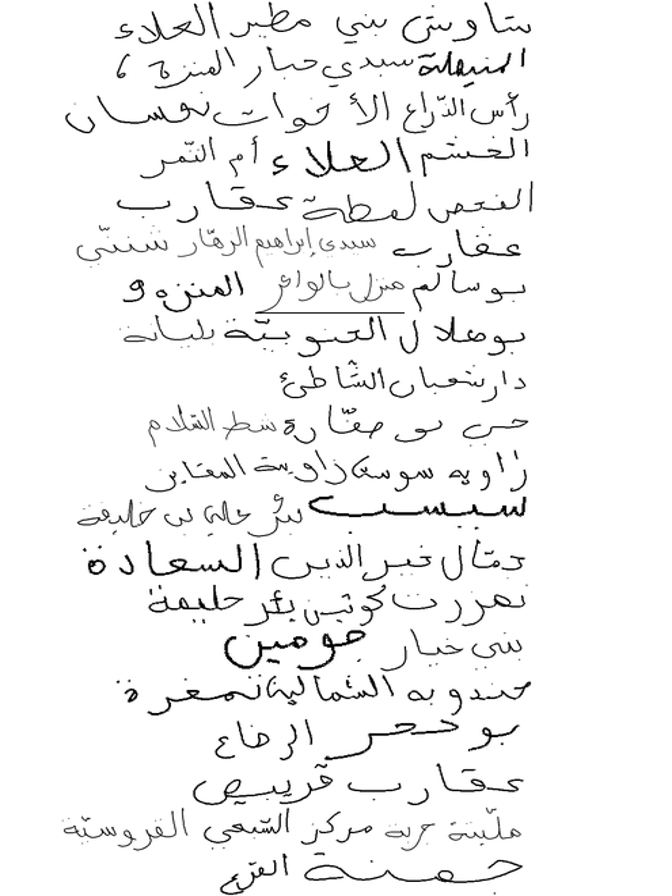 شاوش بني مطير العلاء
المنيهلة سيدي جبار المنزه 6
رأس الذّراع الأخوات نفسان
الخشم العلاء أم الثّمر
الفحص لمطة عقارب
عقارب سيدي إبراهيم الزهّار شننّي
بوسالم منزل بالوائر المنزه 9
بوهلال الجنوبيّة بليانة
دار شعبان الشّاطئ
حي بوصفّارة شط السّلام
زاوية سوسة زاوية المقايز
سبسب بئر علي بن خليفة
جمّال خير الدين السعادة
نعزرت كوتين بئر حليمة
بني خيار جومين
جندوبة الشمالية تمغزة
بوحجر الرضاع
عقارب قريبص
ملّيتة جربة مركز الشيحي الفروسيّة
جمنة القرع